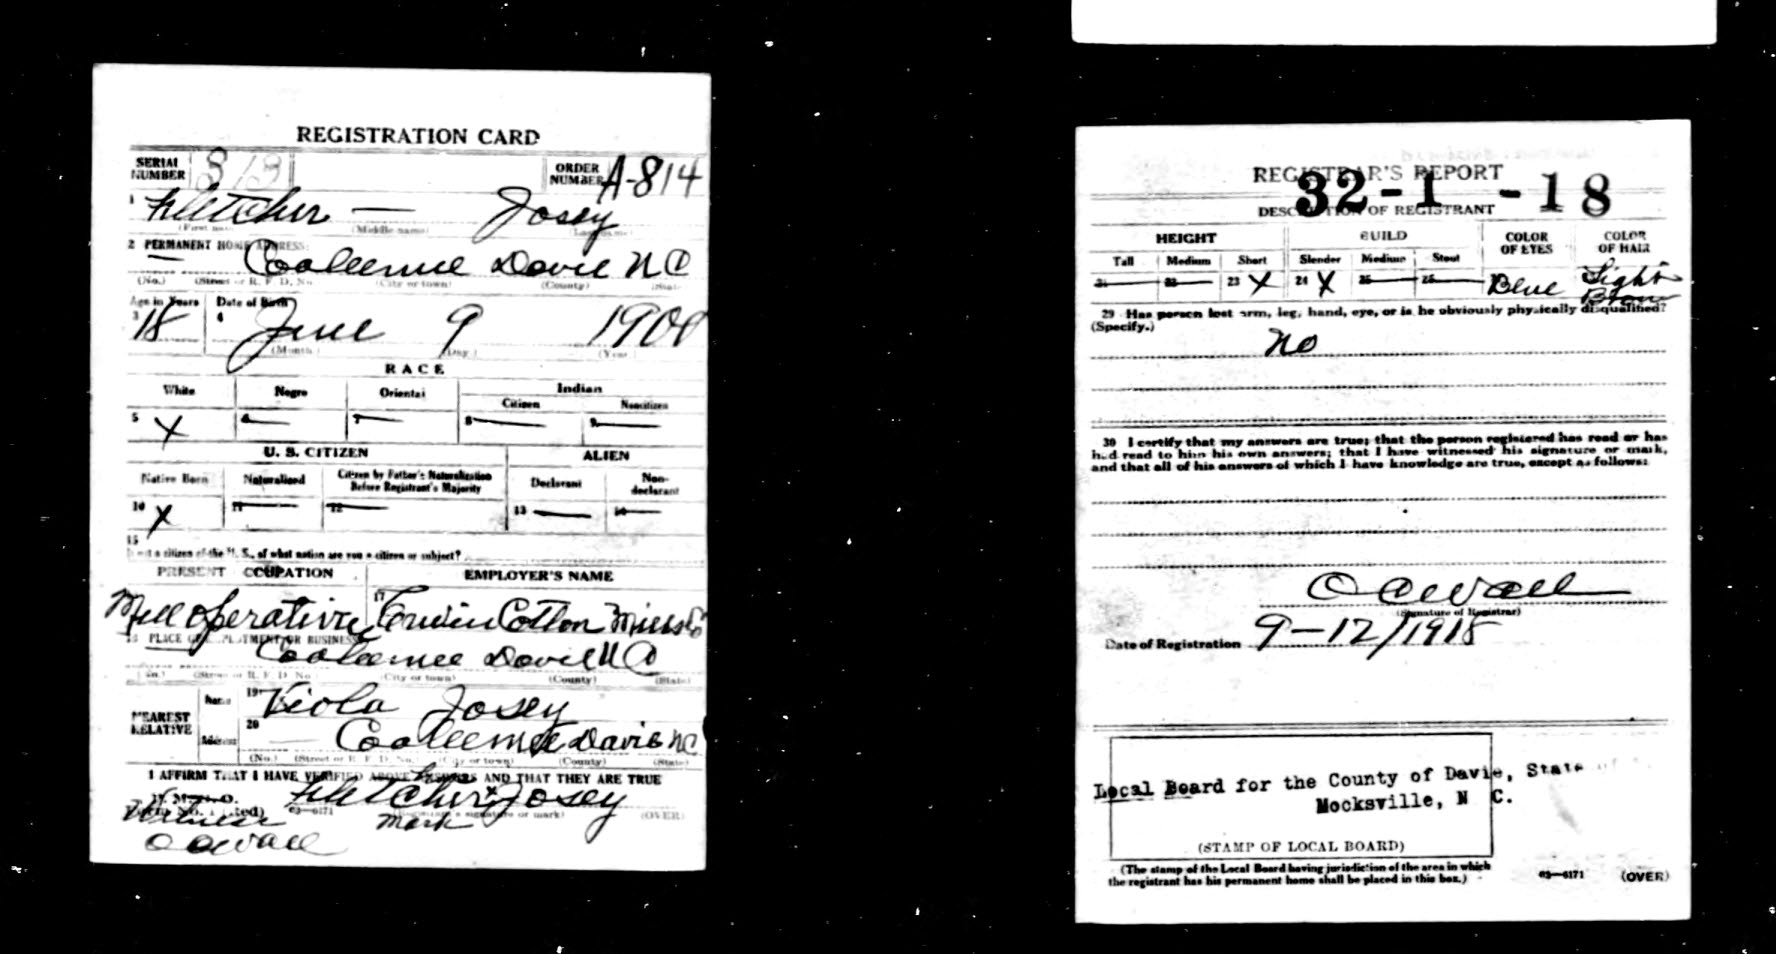 REGISTRATION CARD
SERIAL NUMBER 313 ORDER NUMBER A-814
1 Fletcher — Josey
(First name) (Middle name) (Last name)
2 PERMANENT HOME ADDRESS:
— Cooleemee Davie N C
(No.) (Street or R. F. D. No. (City or town) (County) (State)
Age in Years Date of Birth
3 18 4 June 9 1900
(Month.) (Day.) (Year.)
RACE
White Negro Oriental Indian
Citizen Noncitizen
5 X 6 — 7 — 8 — 9 —
U. S. CITIZEN ALIEN
Native Born Naturalized Citizen by Father's Naturalization Before Registrant's Majority Declarant Non-declarant
10 X 11 — 12 — 13 — 14 —
15
If not a citizen of the U. S., of what nation are you a citizen or subject?
PRESENT OCCUPATION EMPLOYER'S NAME
Mill operative 17 Erwin Cotton Mills Co
18 PLACE OF EMPLOYMENT OR BUSINESS
Cooleemee Davie N C
(No.) (Street or R. F. D. No.) (City or town) (County) (State)
NEAREST RELATIVE Name 19 Viola Josey
Address 20 — Cooleemee Davie NC
(No.) (Street or R. F. D. No.) (City or town) (County) (State)
I AFFIRM THAT I HAVE VERIFIED ABOVE ANSWERS AND THAT THEY ARE TRUE
P. M. G. O.
Form No. 1 (Red) 03—6171 Fletcher his x Josey
Witness mark (Registrant's signature or mark) (OVER)
O C Wall
REGISTRAR'S REPORT
32-1-18
DESCRIPTION OF REGISTRANT
HEIGHT BUILD COLOR OF EYES COLOR OF HAIR
Tall Medium Short Slender Medium Stout
21 — 22 — 23 X 24 X 25 — 26 — Blue Light Brown
29 Has person lost arm, leg, hand, eye, or is he obviously physically disqualified?
(Specify.)
No
30 I certify that my answers are true; that the person registered has read or has
had read to him his own answers; that I have witnessed his signature or mark,
and that all of his answers of which I have knowledge are true, except as follows:
O C Wall
(Signature of Registrar)
Date of Registration 9-12/1918
Local Board for the County of Davie, State of
Mocksville, N C.
(STAMP OF LOCAL BOARD)
(The stamp of the Local Board having jurisdiction of the area in which
the registrant has his permanent home shall be placed in this box.)
03—6171 (OVER)